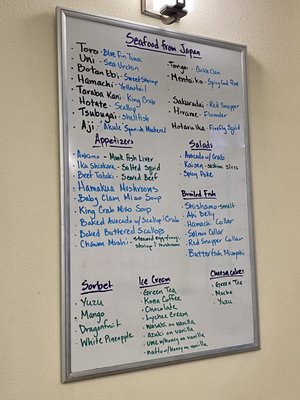 Seafood from Japan
Toro - Blue Fin Tuna
Uni - Sea Urchin
Botan Ebi - Sweet Shrimp
Hamachi - Yellowtail
Taraba Kani - King Crab
Hotate - Scallop
Tsubugai - Shellfish
Aji -
Mentaiko - Spicy Cod Roe
Sakuradai - Red Snapper
Hirame - Flounder
Hotaru Ika - Firefly Squid
Appetizers
Ankimo - Monk Fish Liver
Ika Shiokara - Salted Squid
Beef Tataki - Seared Beef
Hamakua Mushrooms
Baby Clam Miso Soup
King Crab Miso Soup
Baked Avocado w/Scallop/Crab
Baked Buttered Scallops
Chawan Mushi - steamed egg
shrimp/mushroom
Salads
Avocado w/ Crab
Kaisen - sashimi slices
Spicy Poke
Broiled Fish
Shishamo - smelt
Ahi Belly
Hamachi Collar
Salmon Collar
Red Snapper Collar
Butterfish Misoyaki
Sorbet
Yuzu
Mango
Dragonfruit
White Pineapple
Ice Cream
Green Tea
Kona Coffee
Chocolate
Lychee Cream
Wasabi on vanilla
azuki on vanilla
ume w/honey on vanilla
natto w/honey on vanilla
Cheesecakes
Green Tea
Mocha
Yuzu